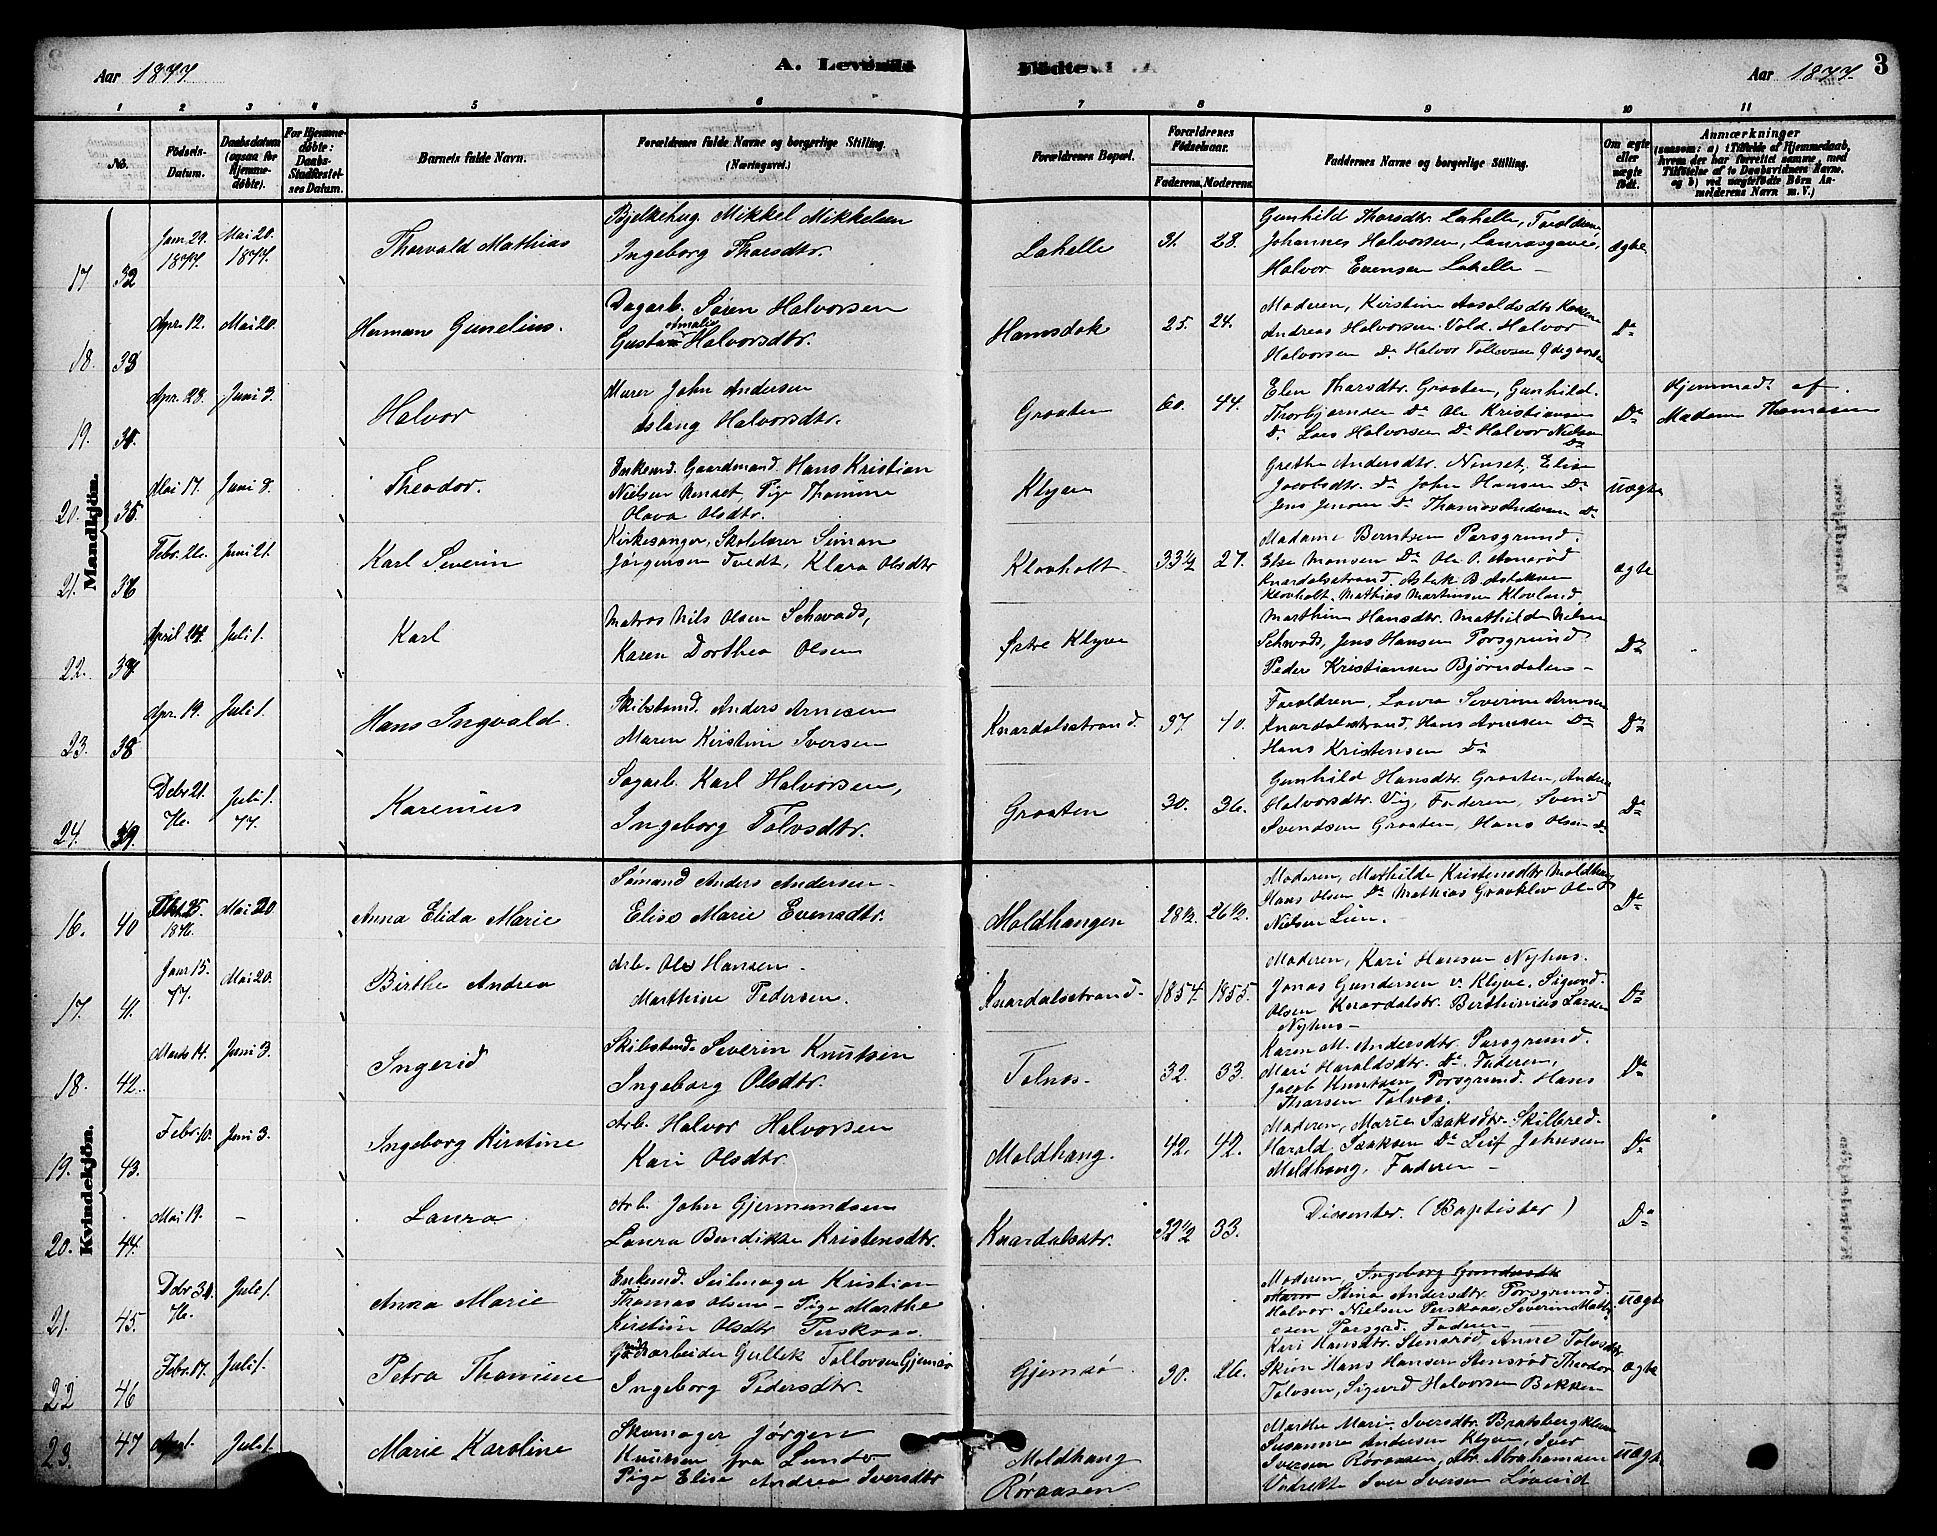 Aar 1877
A. Levende
Fødte.
Aar 1877.
3
1
2
3
4
5
6
7
8
9
10
11
No.
Födsels-Datum.
Daabsdatum (ogsaa for Hjemmedöbte).
For Hjemmedöbte: Daabs-Stadfæstelses Datum.
Barnets fulde Navn.
Forældrenes fulde Navne og borgerlige Stilling.
(Næringsvei.)
Forældrenes Bopæl.
Forældrenes Födselsaar.
Faderens. Moderens.
Faddernes Navne og borgerlige Stilling.
Om ægte eller uægte født.
Anmærkninger
(saasom: a) i Tilfælde af Hjemmedaab, hvem der har forrettet samme, med Tilføielse af to Daabsvidners Navne, og b) ved uægtefødte Börn Anmelderens Navn m. V.)
Mandkjön.
17 32 Jan. 29. 1877. Mai 20. 1877. Thorvald Mathias
Bjelkehug. Mikkel Mikkelsen
Ingeborg Thorsdtr.
Lahelle 31. 28.
Gunhild Thorsdtr. Lahelle, Forældrene,
Johannes Halvorsen,
Halvor Evensen Lahelle –
ægte
18. 33 Apr. 12. Mai 20. Herman Gunelius.
Dagarb. Søren Halvorsen
Amalie
Halvorsdtr.
25. 24.
Moderen, Kirstine
Andreas Halvorsen Vold. Halvor
Halvorsen Do Halvor Tollevsen Ødegaarden
Do
19. 34. Apr. 23. Juni 3. Halvor
Murer John Andersen
Aslaug Halvorsdtr.
Graaten 60. 44.
Elen Thorsdtr. Graaten, Gunhild
Thorbjørnsen Do Ole Kristiansen
Do Lars Halvorsen Do Halvor Nielsen
Do
Do
Hjemmed. af
Madam Thomesen
20. 35 Mai 17. Juni 3. Theodor.
Enkemd. Gaardmand. Hans Kristian
Nielsen Nenset, Pige Thomine
Olava Olsdtr.
Klyve
Grethe Andersdtr. Nenset, Elise
Jacobsdtr. Do John Hansen Do
Jens Jensen Do Thomas Andersen Do
uægte
21. 36 Febr. 26. Juni 21. Karl Severin
Kirkesanger, Skolelærer Simon
Jørgensen Tvedt, Klara Olsdtr
Klovholt. 33½ 27.
Madame Berntsen Porsgrund.
Else Monsen Do Ole O. Aarerød
Knardalsstrand. Aslak B. Aslaksen
Klovholt. Mathias Martinsen Klovland.
ægte
22. 37 April 24. Juli 1. Karl
Matros Nils Olsen Schwads,
Karen Dorthea Olsen
Østre Klyve
Marthine Hansdtr. Mathilde Nilsen
Schwads, Jens Hansen Porsgrund
Peder Kristiansen Bjørndalen –
Do
23. 38 Apr. 19. Juli 1. Hans Ingvald.
Skibstømd. Anders Arnesen
Maren Kirstine Iversen
Knardalsstrand 37. 40.
Forældrene, Laura Severine Arnesen
Knardalsstrand, Hans Arnesen Do
Hans Kristensen Do
Do
24. 39. Debr 21. 76. Juli 1. 77. Karenius
Sagarb. Karl Halvorsen,
Ingeborg Tolvsdtr.
Graaten 30. 36.
Gunhild Hansdtr. Graaten, Andrea
Halvorsdtr. Vig, Faderen, Svend
Svendsen Graaten, Hans Olsen Do
Do
Kvindekjön.
16. 40 25. 1876. Mai 20. Anna Elida Marie
Sømand Anders Andersen
Elise Marie Evensdtr.
Moldhaugen 28½. 26½.
Moderen, Mathilde Kristensdtr Moldhaug
Hans Olsen Do Mathias Graaklev Ole
Nielsen Lien.
Do
17. 41. Janr 15. 77. Mai 20. Birthe Andrea
Arb. Ole Hansen
Marthine Pedersen.
Knardalsstrand. 1854. 1855.
Moderen, Kari Hansen Nyhus.
Jonas Gundersen v. Klyve, Sigurd
Olsen Knardalstr. Berthinius Larsen
Nyhus –
Do
18. 42. Marts 14. Juni 3. Ingerid
Skibstømd. Severin Knutsen
Ingeborg Olsdtr.
Tolnæs. 32. 33.
Karen M. Andersdtr. Porsgrund.
Mari Haraldsdtr. Do Faderen,
Jacob Knutsen Porsgrund. Hans
Thorsen Tolnæs.
Do
19. 43. Febr. 10. Juni 3. Ingeborg Kirstine
Arb. Halvor Halvorsen
Kari Olsdtr.
Moldhaug. 42. 42.
Moderen, Marie Isaksdtr. Skilbred.
Harald Isaksen Do Leif Johnsen
Moldhaug, Faderen –
Do
20. 44. Mai 19. – Laura
Arb. John Gjermundsen
Laura Bendikse Kristensdtr.
Knardalsstr. 32½ 33.
Dissenter. (Baptister)
Do
21. 45. Debr 30. 76. Juli 1. Anna Marie
Enkemd. Seilmager Kristian
Thomas Olsen – Pige Marthe
Kirstine Olsdtr Perskaas
Moderen, Ingeborg Gundersdtr
Stina Andersdtr. Porsgrund.
Halvor Nielsen Perskaas, Severin
Porsgrd. Faderen –
uægte
22 46 Febr. 17. Juli 1. Petra Thomine
Gaardarbeider Gullek Tollevsen Gjemsø
Ingeborg Pedersdtr.
Gjemsø 30. 26.
Kari Hansdtr. Stensrød, Anne Tolvsdtr
Skien Hans Hansen Stensrød Theodor
Tolvsen, Sigurd Halvorsen Bakken
ægte
23. 47 Juli 1. Marie Karoline
Skomager Jørgen
Knutsen fra Lunde
Pige Elise Andrea Iversdtr
Moldhaug
Røraasen
Marthe Marie Iversdtr. Bratsbergkleven
Susanne Andersen Klyve, Iver
Iversen Røraasen, Abr. Abrahamsen
Iver Iversen Løvlid
uægte